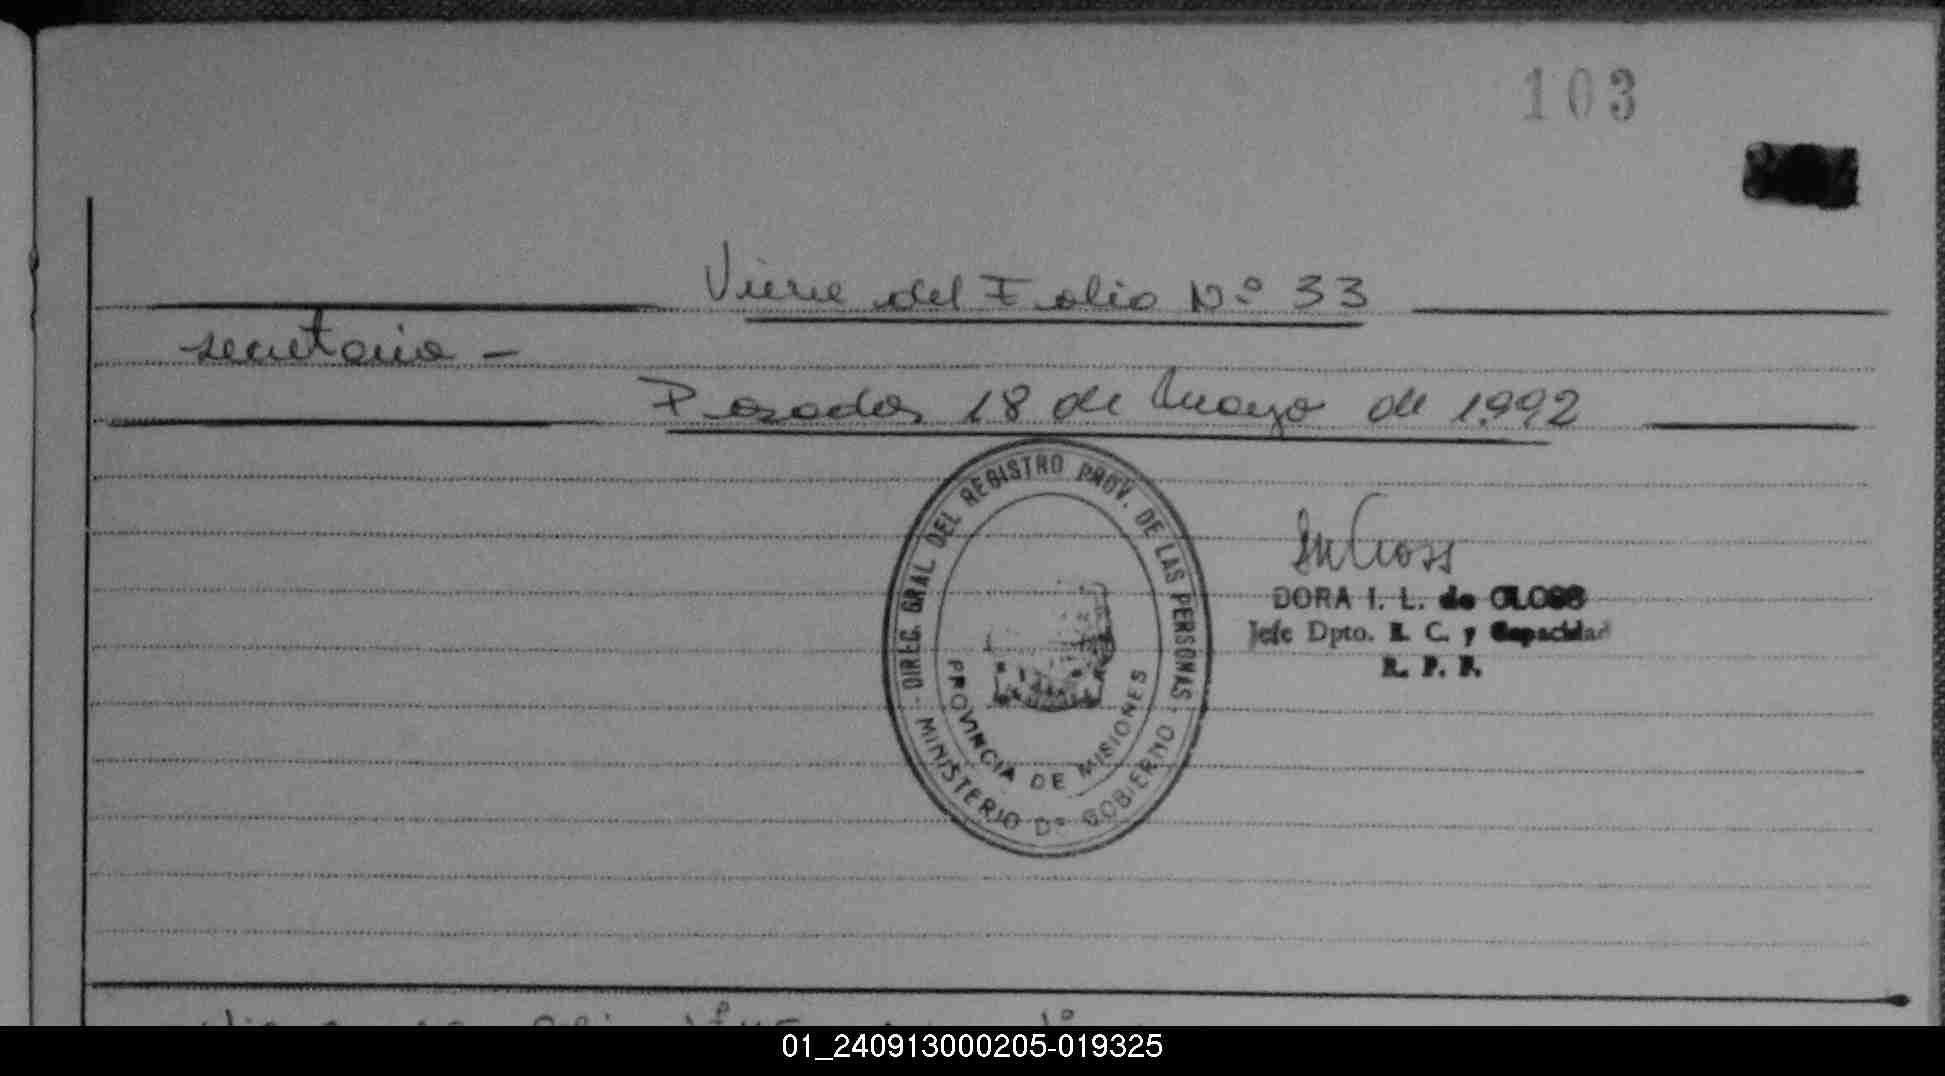 103
Viene del Folio Nº 33
secretaria -
Posadas 18 de Mayo de 1.992
DIREC. GRAL DEL REGISTRO PROV. DE LAS PERSONAS
MINISTERIO Dº GOBIERNO
PROVINCIA DE MISIONES
DORA I. L. de CLOSS
Jefe Dpto. E. C. y Capacidad
R. P. P.
01_240913000205-019325